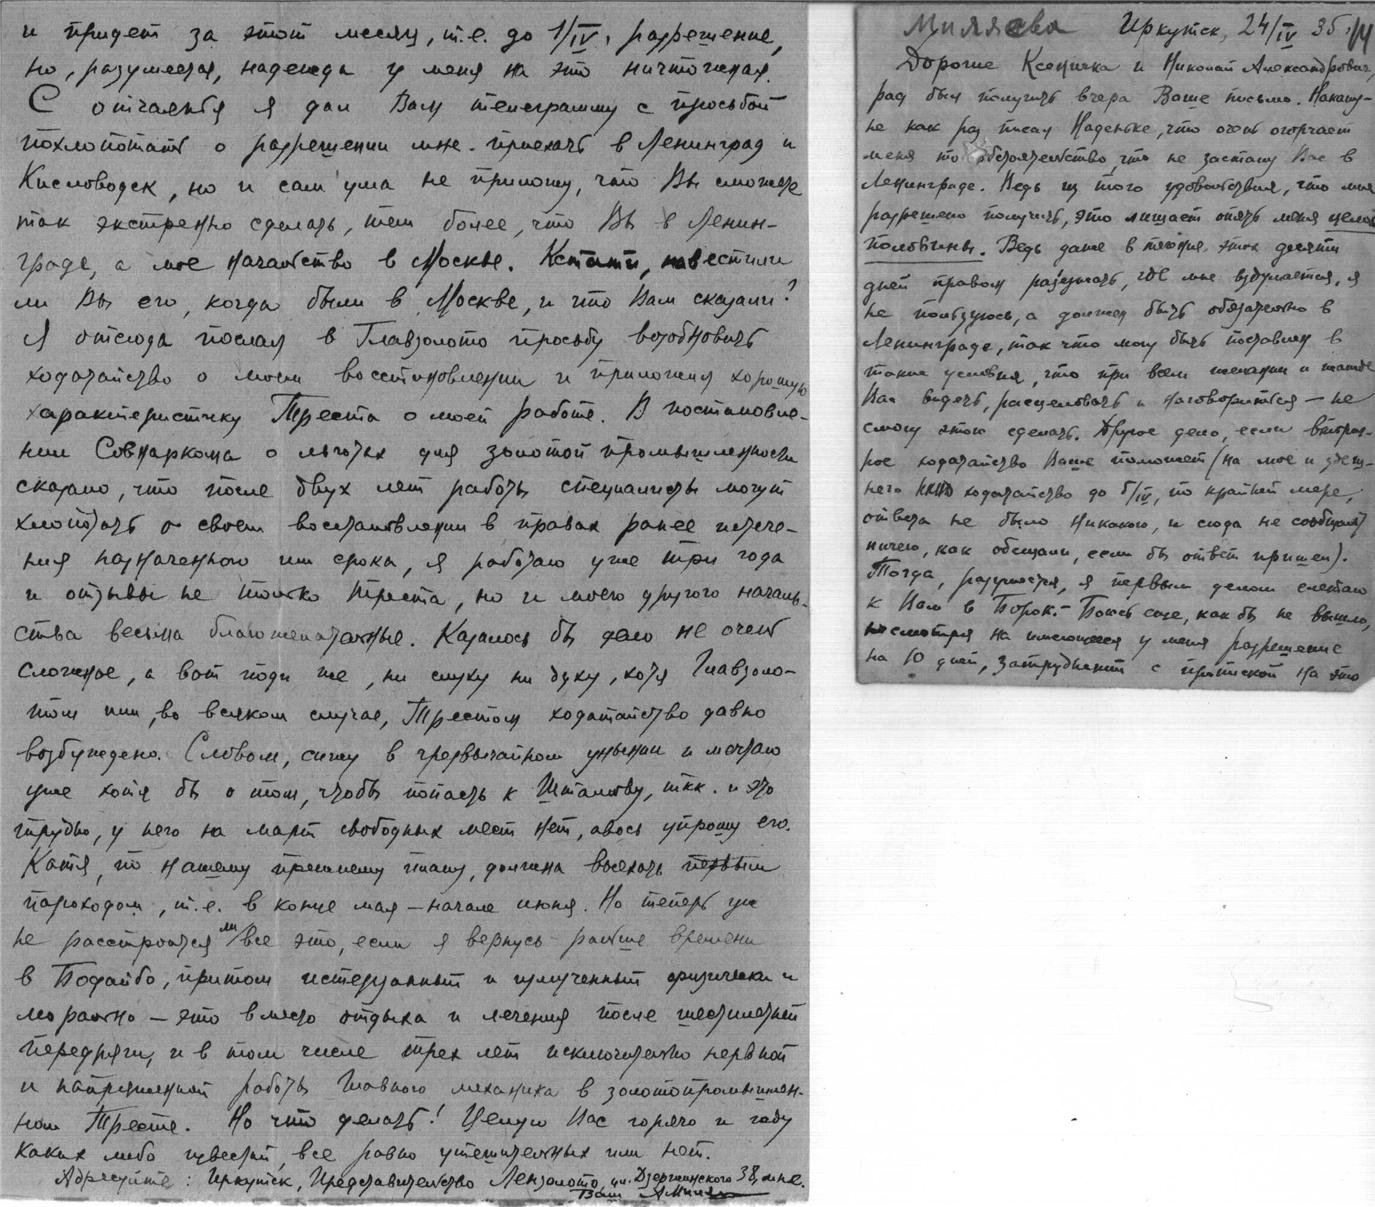 и придет за этот месяц, т.е. до 1/IV, разрешение,
но, разумеется, надежда у меня на это ничтожная.
С отчаянья я дал Вам телеграмму с просьбой
похлопотать о разрешении мне приехать в Ленинград и
Кисловодск, но и сам ума не приложу, что Вы сможете
так экстренно сделать, тем более, что Вы в Ленин-
граде, а мое начальство в Москве. Кстати, навестили
ли Вы его, когда были в Москве, и что Вам сказали?
Я отсюда послал в Главзолото просьбу возобновить
ходатайство о моем восстановлении и приложил хорошую
характеристику Треста о моей работе. В постановле-
нии Совнаркома о льготах для золотой промышленности
сказано, что после двух лет работы специалисты могут
хлопотать о своем восстановлении в правах ранее истече-
ния назначенного им срока, я работаю уже три года
и отзывы не только Треста, но и моего другого началь-
ства весьма благожелательные. Казалось бы дело не очень
сложное, а вот поди же, ни слуху ни духу, хотя Главзоло-
том или, во всяком случае, Трестом ходатайство давно
возбуждено. Словом, сижу в чрезвычайном унынии и мечтаю
уже хотя бы о том, чтобы попасть к , т.к. и это
трудно, у него на март свободных мест нет, авось упрошу его.
Катя, по нашему прежнему плану, должна выехать первым
пароходом, т.е. в конце мая – начале июня. Но теперь уж
не расстроится ли все это, если я вернусь раньше времени
в Бодайбо, притом истерзанный и измученный физически и
морально – это вместо отдыха и лечения после шестилетней
передряги, и в том числе трех лет исключительно нервной
и напряженной работы Главного механика в золотопромышлен-
ном Тресте. Но что делать! Целую Вас горячо и жду
каких либо известий, все равно утешительных или нет.
Адресуйте: Иркутск, Представительство Лензолото, ул. Дзержинского 38, мне.
Ваш
Иркутск, 24/IV 35 г.
Дорогие Ксеничка и Николай Александрович,
рад был получить вчера Ваше письмо. Накану-
не как раз писал Наденьке, что очень огорчает
меня то обстоятельство, что не застану Вас в
Ленинграде. Ведь из того удовольствия, что мне
разрешено получить, это лишает опять меня целой
половины. Ведь даже в течение этих десяти
дней правом разъезжать, где мне вздумается, я
не пользуюсь, а должен быть обязательно в
Ленинграде, так что могу быть поставлен в
такие условия, что при всем желании и жажде
Вас видеть, расцеловать и наговориться – не
смогу этого сделать. Другое дело, если вторич-
ное ходатайство Ваше поможет (на мое и здеш-
него ходатайство до 5/IV, по крайней мере,
ответа не было никакого, и сюда не сообщают
ничего, как обещали, если бы ответ пришел).
Тогда, разумеется, я первым делом слетаю
к Вам в Борок. – Боюсь еще, как бы не вышло,
несмотря на имеющееся у меня разрешение
на 10 дней, затруднений с пропиской на это